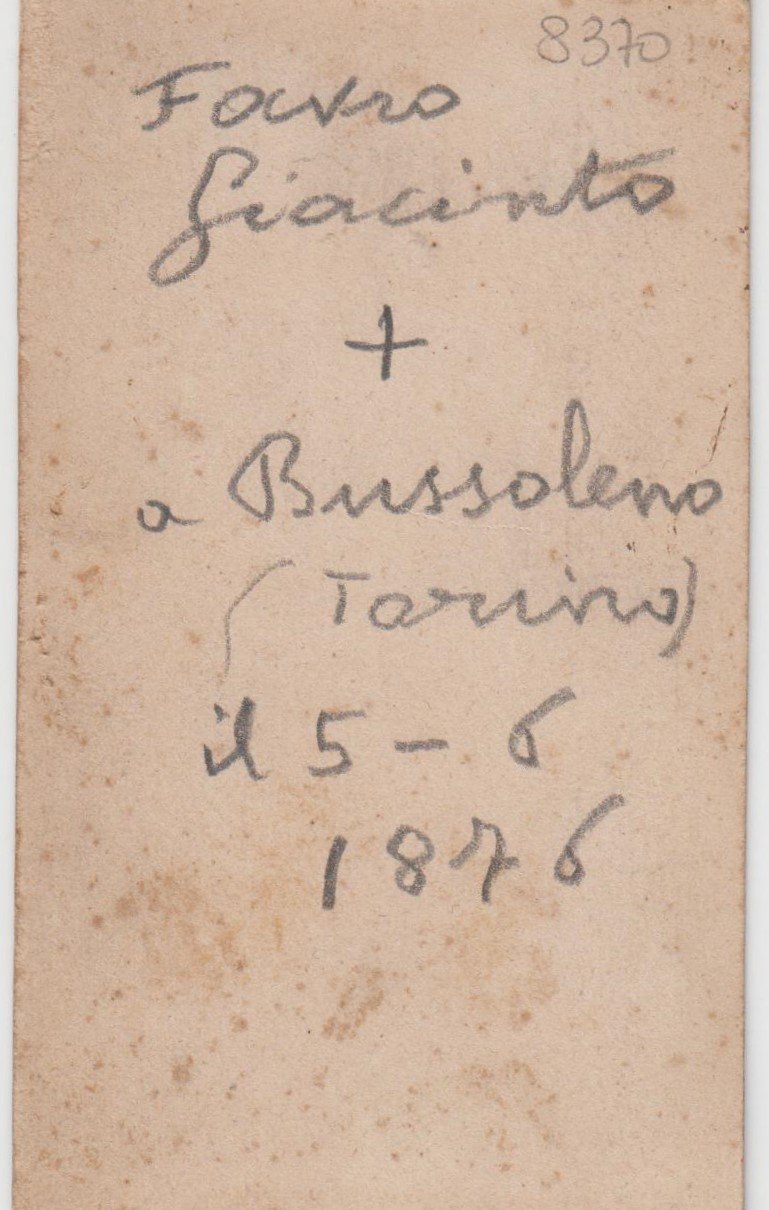 8370
Favro
Giacinto
+
a Bussoleno
(Torino)
il 5 - 6
1876